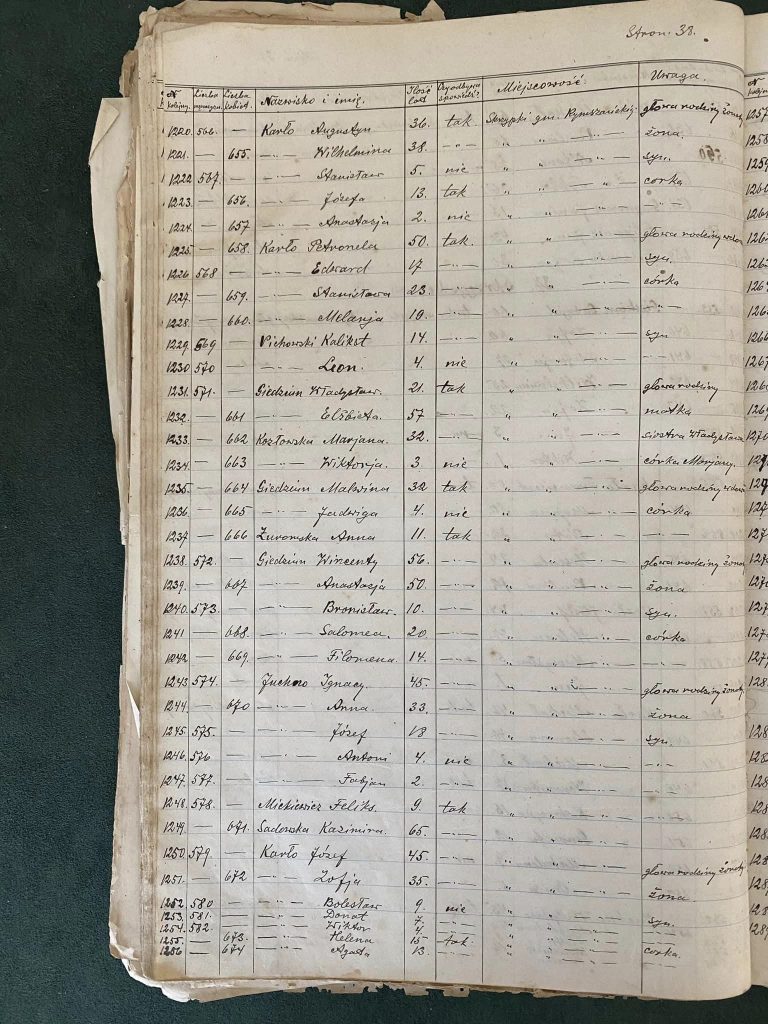 Stron. 38.
N kolejny. Liczba mężczyzn. Liczba kobiet. Nazwisko i imię. Ilość lat. Czy odbywa spowiedź? Miejscowość: Uwaga.
1220. 566. — Karło Augustyn 36. tak. Skrzypki gm. Rymszańskiej. głowa rodziny żonaty
1221. — 655. —"— Wilhelmina 38. —"— " " —"— żona.
1222 567. — —"— Stanisław 5. nie " " —"— syn.
1223. — 656. —"— Józefa 13. tak " " —"— corka
1224. — 657 —"— Anastazja 2. nie " " —"— —"—
1225. — 658. Karło Petronela 50. tak. " " —"— głowa rodziny wdowa
1226. 568 — —"— Edward 17. —"— " " —"— syn.
1227. — 659. —"— Stanisława 23. —"— " " —"— córka
1228. — 660. —"— Melanja 10. —"— " " —"— —"—
1229. 569 — Vichowski Kalikst 14. —"— " " —"— syn
1230 570 — —"— Leon. 4. nie " " —"— —"—
1231. 571. — Giedziun Władysław. 21. tak " " —"— głowa rodziny
1232. — 661 —"— Elżbieta 57 —"— " " —"— matka
1233. — 662 Kozłowska Marjana. 32. —"— " " —"— siostra Władysława
1234. — 663 —"— Wiktorja. 3. nie " " —"— córka Marjany.
1235. — 664 Giedziun Malwina 32 tak " " —"— głowa rodziny wdowa
1236. — 665 —"— Jadwiga 4. nie " " —"— córka
1237. — 666 Żurowska Anna 11. tak " " —"— —"—
1238. 572. — Giedziun Wincenty 56. —"— " " —"— głowa rodziny żonaty
1239. — 667 —"— Anastazja 50. —"— " " —"— żona
1240. 573. — —"— Bronisław. 10. —"— " " —"— syn.
1241 — 668. —"— Salomea. 20. —"— " " —"— córka
1242 — 669. —"— Filomena. 14. —"— " " —"— —"—
1243. 574. — Juchno Ignacy. 45. —"— " " —"— głowa rodziny żonaty.
1244. — 670 —"— Anna. 33. —"— " " —"— żona
1245. 575. — —"— Józef 13 —"— " " —"— syn.
1246. 576 — —"— Antoni 4. nie " " —"— —"—
1247. 577. — —"— Fabjan 2. —"— " " —"— —"—
1248. 578. — Mickiewicz Feliks. 9. tak " " —"— —"—
1249. — 671. Sadowska Kazimira. 65. —"— " " —"— —"—
1250. 579. — Karło Józef 45. —"— " " —"— głowa rodziny żonaty
1251. — 672 —"— Zofja 35. —"— " " —"— żona
1252. 580 — —"— Bolesław 9. nie " " —"— syn.
1253. 581. — —"— Donat 7. —"— " " —"— —"—
1254. 582 — —"— Wiktor 4. —"— " " —"— —"—
1255. — 673. —"— Helena 15. tak. " " —"— corka.
1256 — 674 —"— Agata 13. —"— " " —"— —"—